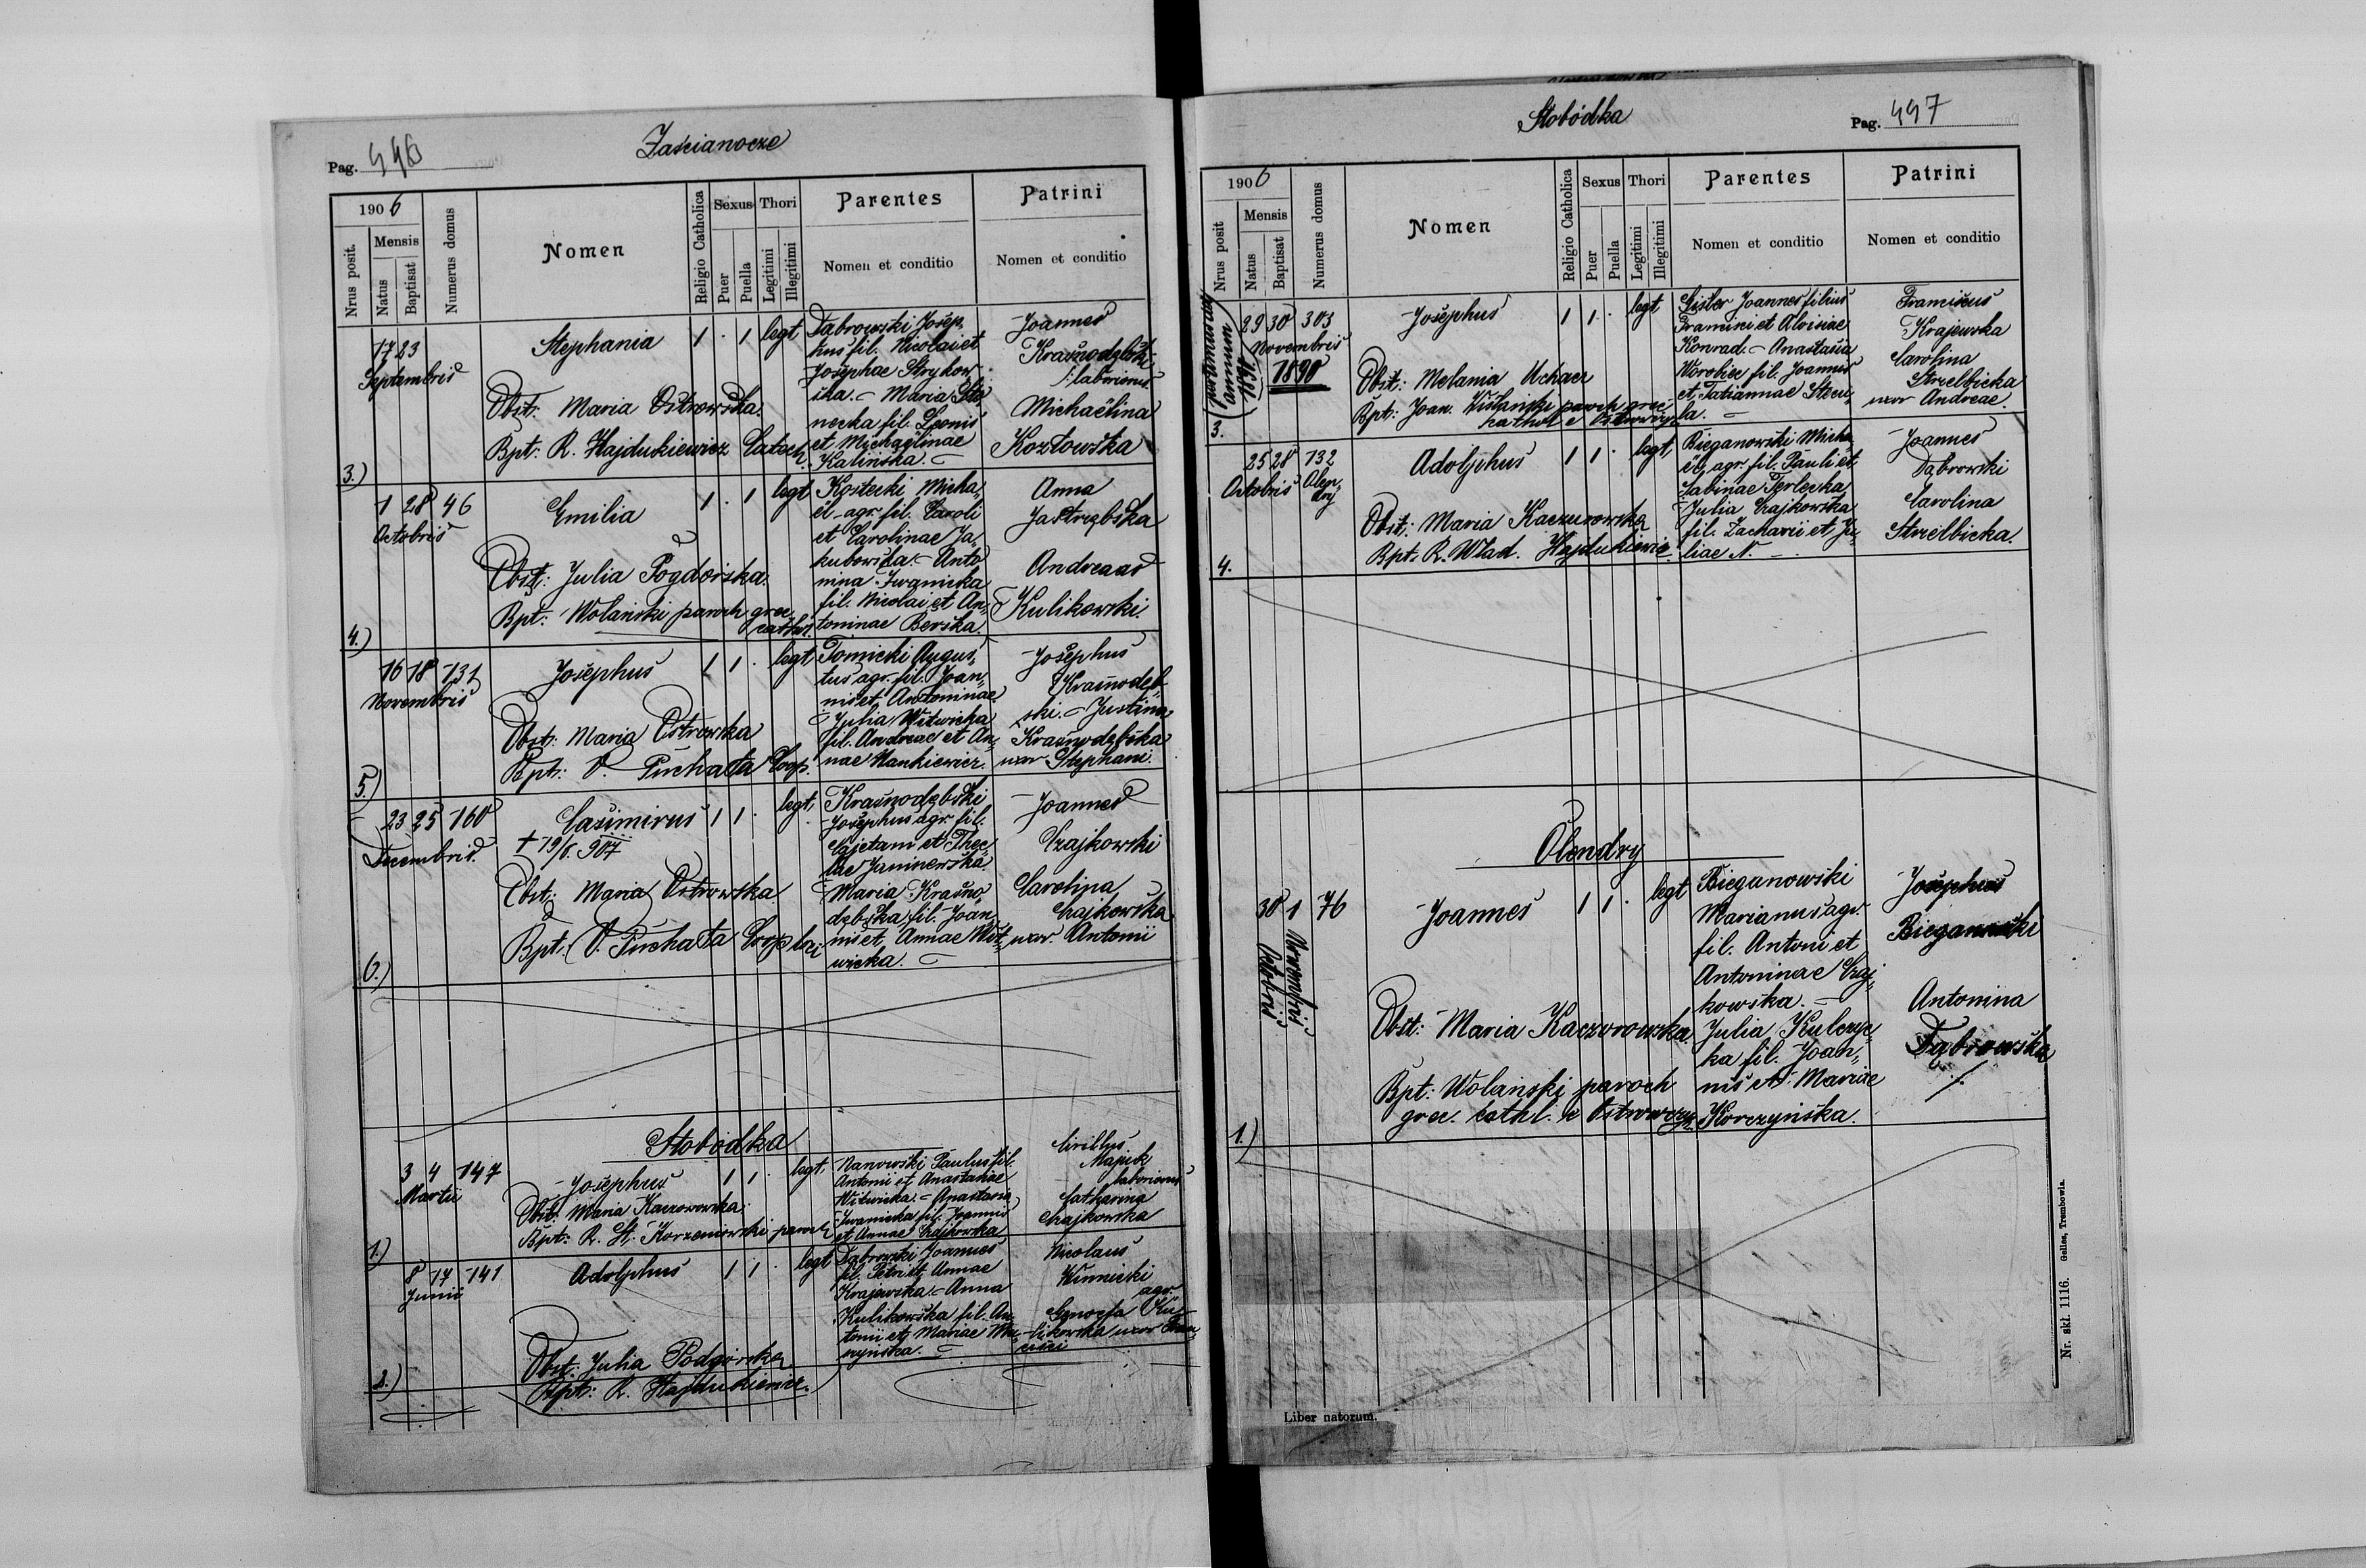 Pag. 446
Zaścianocze
1906
Nrus posit.
Mensis
Natus
Baptisat
Numerus domus
Nomen
Religio Catholica
Sexus
Puer
Puella
Thori
Legitimi
Illegitimi
Parentes
Nomen et conditio
Patrini
Nomen et conditio
3.)
17 23
Septembris
Stephania
1 . 1 legt
Obst: Maria Ostrowska.
Bpt: R. Hajdukiewicz
Dąbrowski Josep,
hus fil. Nicolai et
Josephae Strykow,
ska. – Maria
necka fil. Leonis
et Michaëlinae
Kalińska. –
Joannes
Krasnodębski
laborious
Michaëlina
Kozłowska
4.)
1 28 46
Octobris
Emilia
1 . 1 legt
Obst: Julia Pogdórska.
Bpt: Wolański paroch grec.
cathol.
Kostecki Micha,
ël agr. fil. Caroli
et Carolinae Ja,
kubowska – Anto
nina Iwanicka
fil. Nicolai et An,
toninae Berska.
Anna
Jastrzębska
Andreas
Kulikowski.
5.)
16 18 131
Novembris
Josephus
1 1 . legt
Obst: Maria Ostrowska
Bpt: V. Puchała Coop.
Tomicki Augus,
tus agr. fil. Joan,
nis et Antoninae
Julia Witwicka
fil. Andreae et An,
nae Mankiewicz.
Josephus
Krasnodęb,
ski. – Justina
Krasnodębska
uxor Stephani.
6.)
23 25 160
Decembris.
Casimirus
1 1 . legt.
+ 19/8. 907
Obst: Maria Ostrowska
Bpt: V. Puchała Coop loci
Krasnodębski
Josephus agr. fil.
Cajetani et Thec,
lae Janinewska
Maria Krasno,
dębska fil. Joan,
nis et Annae Wit,
wicka. –
Joannes
Czajkowski
Carolina
Czajkowska
uxor Antonii
Słobódka
1.)
3 4 147
Martii
Josephus
1 1 . legt.
Obst: Maria Kaczorowska
Bpt: R. St. Korzeniowski paroch
Nanowski Paulus fil.
Antonii et Anastasiae
Witwicka. – Anastasia
Iwanicka fil. Joannis
et Annae Czajkowska
Cirillus
Majick
laborious
Catharina
Czajkowska
2.)
8 17 141
Junii
Adolphus
1 1 . legt
Obst: Julia Podgórska
Bpt: R. Hajdukiewicz.
Dąbrowski Joannes
fil. Petri et Annae
Krajewska – Anna
Kulikowska fil. An,
tonii et Mariae
Nicolaus
Winnicki
agr.
Genoefa Ku
likowska uxor
Słobódka
Pag. 447
1906
Nrus posit
Mensis
Natus
Baptisat
Numerus domus
Nomen
Religio Catholica
Sexus
Puer
Puella
Thori
Legitimi
Illegitimi
Parentes
Nomen et conditio
Patrini
Nomen et conditio
3.
annum
1890
30 303
Novembris
1890
Josephus
1 1 . legt
Obst: Melania Uchacz
Bpt: Joan. Wolański paroch grec
cathol e Ostrowczyk
Joannes filius
et Aloisiae
Konrad. – Anastasia
Worobiec fil. Joannis
et Tatiannae
Franciscus
Krajewska
Carolina
Strzelbicka
uxor Andreae.
4.
25 28 132
Octobris Olen,
dry
Adolphus
1 1 . legt
Obst: Maria Kaczurowska
Bpt: R. Wład. Hajdukiewic
Bieganowski Micha,
ël agr. fil. Pauli et
Sabinae Terlecka
Julia Czajkowska
fil. Zacharii et Ju,
liae N. –
Joannes
Dąbrowski
Carolina
Strzelbicka.
Olendry
1.)
30 1 76
Octobris
Novembris
Joannes
1 1 . legt
Obst: Maria Kaczorowska
Bpt: Wolański paroch
grec. cathl. e Ostrowczyk.
Bieganowski
Marianus agr.
fil. Antoni et
Antoninae Czaj,
kowska. –
Julia Kulczyc,
ka fil. Joan,
nis et Mariae
Korczyńska.
Josephus
Bieganowski
Antonina
Dąbrowska
Liber natorum.
Nr. skł. 1116. Gelles, Trembowla.